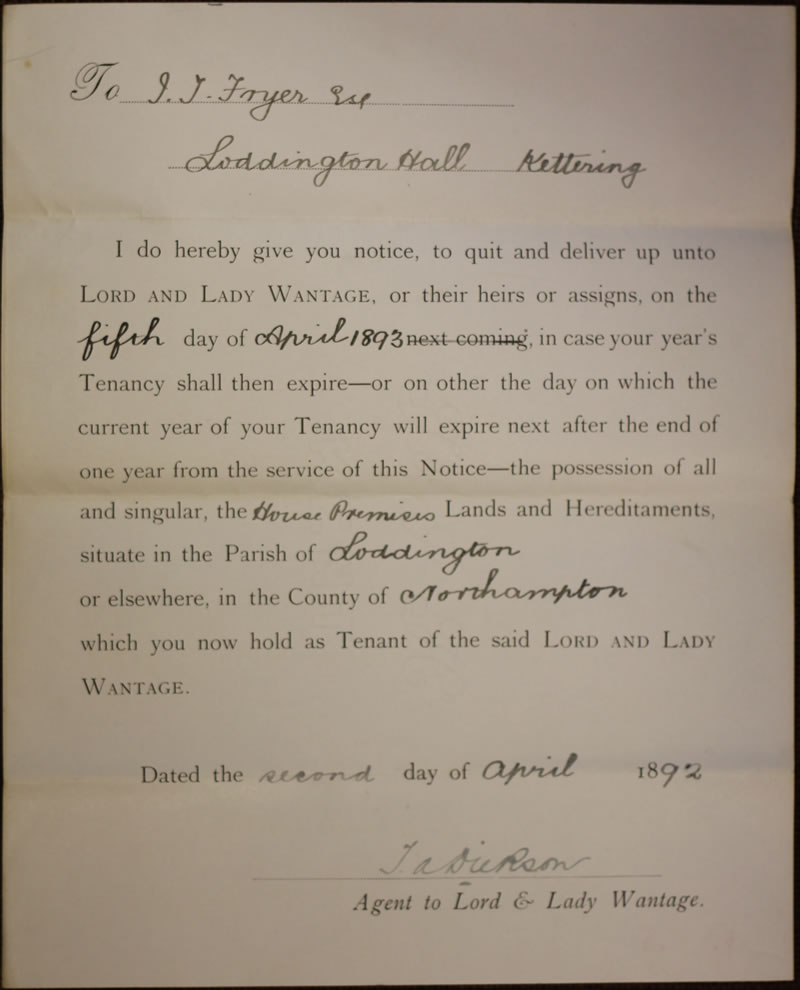 To J. J. Fryer Esq
Loddington Hall Kettering
I do hereby give you notice, to quit and deliver up unto
LORD AND LADY WANTAGE, or their heirs or assigns, on the
fifth day of April 1893 next coming, in case your year's
Tenancy shall then expire—or on other the day on which the
current year of your Tenancy will expire next after the end of
one year from the service of this Notice—the possession of all
and singular, the House Premises Lands and Hereditaments,
situate in the Parish of Loddington
or elsewhere, in the County of Northampton
which you now hold as Tenant of the said LORD AND LADY
WANTAGE.
Dated the second day of April 1892
J a Dickson
Agent to Lord & Lady Wantage.